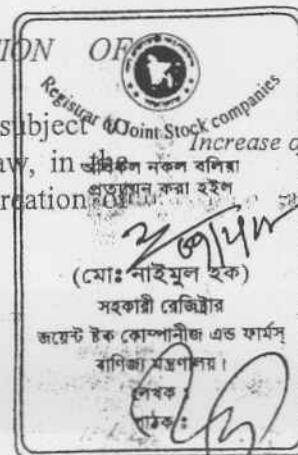 TION OF
Registrar of Joint Stock companies
subject to
Increase of
aw, in the
অবিকল নকল বলিয়া
প্রত্যায়ন করা হইল
reation of
(মোঃ নাইমুল হক)
সহকারী রেজিষ্ট্রার
জয়েন্ট ষ্টক কোম্পানীজ এন্ড ফার্মস্
বাণিজ্য মন্ত্রণালয়।
লেখক :
পাঠক :